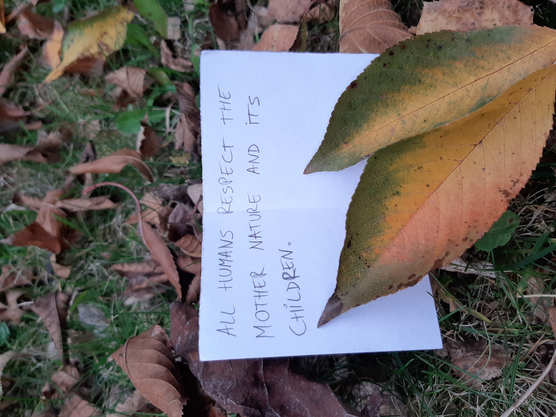 ALL HUMANS RESPECT THE
MOTHER NATURE AND iTS
CHiLDREN.